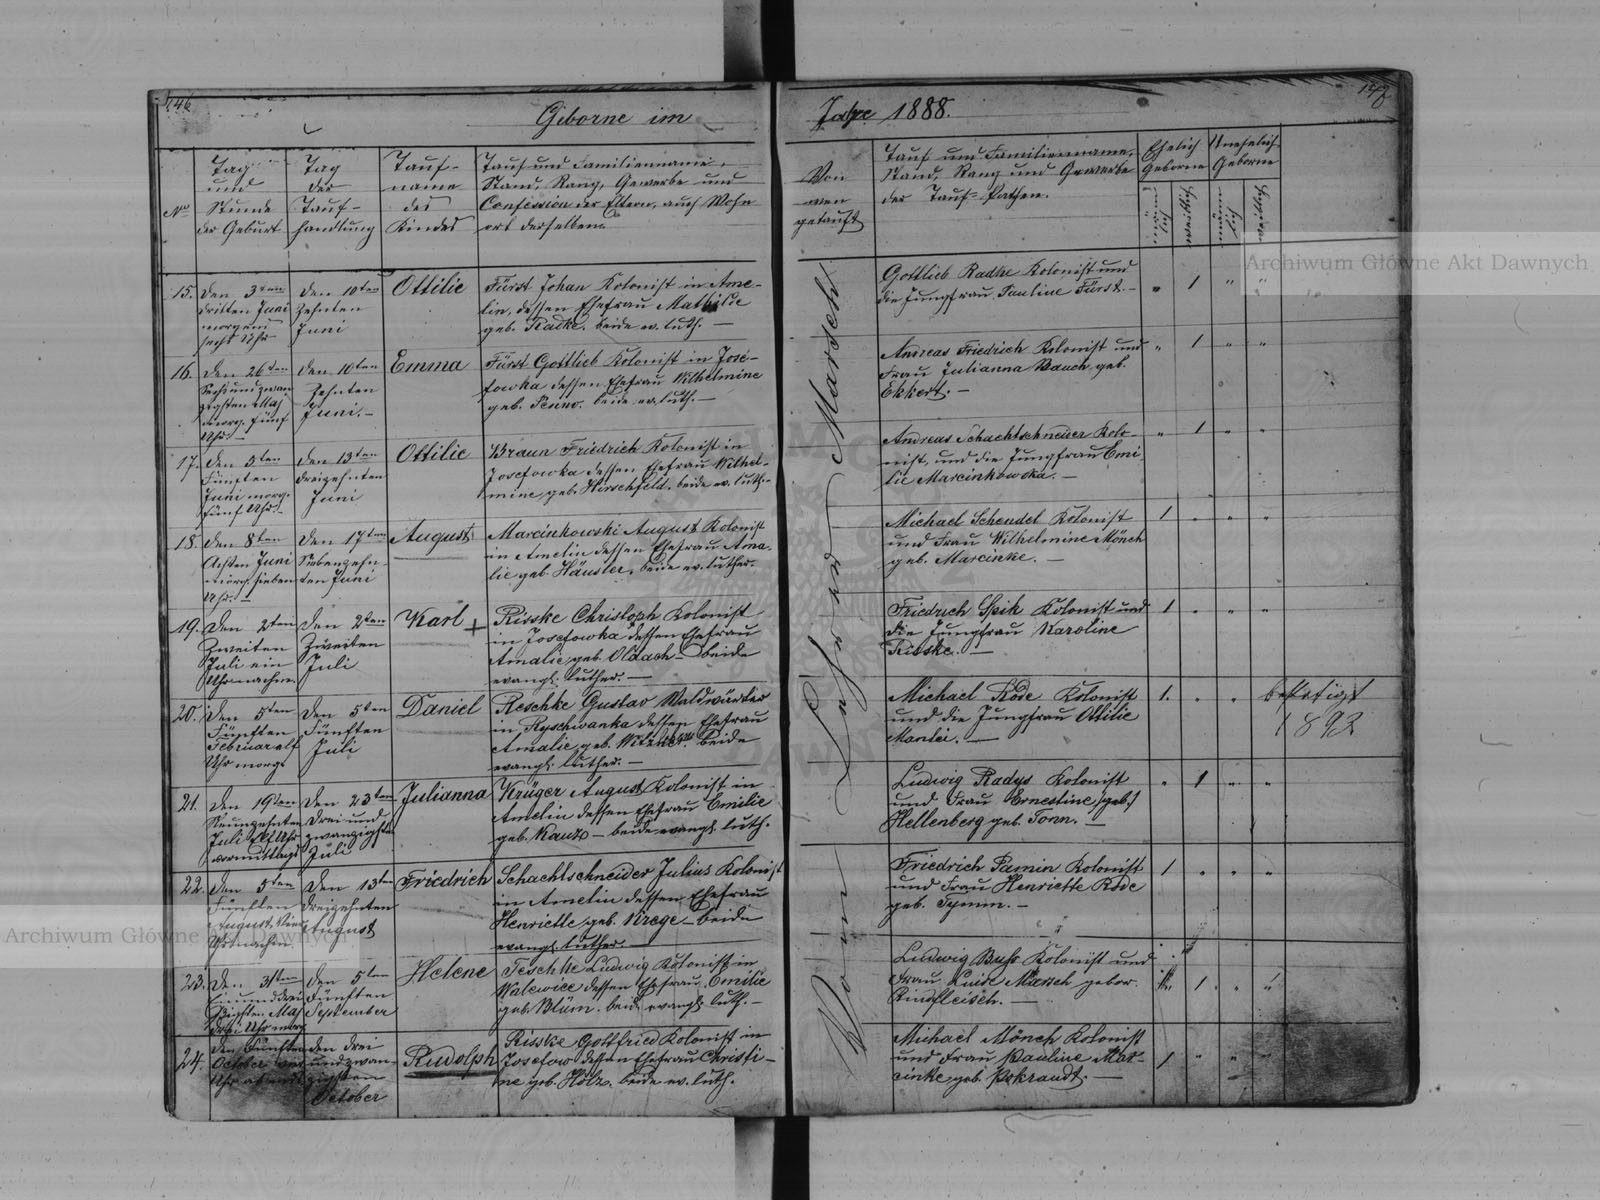 146
Geborne im
No
Tag
und
Stunde
der Geburt
Tag
der
Tauf-
handlung
Tauf-
name
des
Kindes
Tauf und Familienname,
Stand, Rang, Gewerbe und
Confession der Eltern, auch Wohn
ort derselben.
15.
den 3ten
dritten Juni
morgens
sechs Uhr
den 10ten
Zehnten
Juni
Ottilie
Fürst Johan Kolonist in Ame-
lin, dessen Ehefrau Mathilde
geb. Radke. beide ev. luth. —
16.
den 26ten
Sechsundzwan
zigsten Maj
morg. fünf
Uhr. —
den 10ten
Zehnten
Juni. —
Emma
Fürst Gottlieb Kolonist in Jose-
fowka dessen Ehefrau Wilhelmine
geb. Penno. beide ev. luth. —
17.
den 5ten
Fünften
Juni morg.
fünf Uhr. —
den 13ten
dreizehnten
Juni
Ottilie
Braun Friedrich Kolonist in
Josefowka dessen Ehefrau Wilhel-
mine, geb. Hirschfeld. beide ev. luth. —
18.
den 8ten
Achten Juni
morg. sieben
Uhr. —
den 17ten
Siebenzehn-
ten Juni
August
Marcinkowski August Kolonist
in Amelin dessen Ehefrau Ama-
lie geb. Häusler. beide ev. luther.
19.
Den 2ten
Zweiten
Juli ein
Uhr nachm.
Den 2ten
Zweiten
Juli
Karl
Risske Christoph Kolonist
in Josefowka dessen Ehefrau
Amalie, geb. Oldach — beide
evangl. luther. —
20.
Den 5ten
Fünften
Februar elf
Uhr morgs
Den 5ten
Fünften
Juli
Daniel
Reschke Gustav Waldwärter
in Ryschwanka dessen Ehefrau
Amalie, geb. beide
evangl. luther. —
21.
den 19ten
Neunzehnten
Juli Uhr
vormittags
Den 23ten
Drei und
zwanzigsten
Juli
Julianna
Krüger August Kolonist in
Amelin dessen Ehefrau Emilie
geb. Kautz — beide evangl. luth.
22.
den 5ten
Fünften
August vier
Uhr nachm.
Den 13ten
Dreizehnten
August
Friedrich
Schachtschneider Julius Kolonist
in Amelin dessen Ehefrau
Henriette, geb. Krege — beide
evangl. luther. —
23.
Den 31ten
Einunddrei
ßigsten Maj
drei Uhr morg
Den 5ten
Fünften
September
Helene
Teschke Ludwig Kolonist in
Walewice dessen Ehefrau Emilie
geb. Blüm. beid. evangl. luth. —
24.
den Fünften
October vier
Uhr abends
den drei
undzwan-
zigsten
October
Rudolph
Risske Gottfried Kolonist in
Josefow dessen Ehefrau Christi-
ne geb. Holz. beide ev. luth.
147
Jahre 1888.
Von
wem
getauft
Tauf und Familienname,
Stand, Rang und Gewerbe
der Tauf-Pathen.
Ehelich
Geborne
Unehelich
Geborne
männ
lich
weiblich
männ
lich
weiblich
Vom Marsch
Gottlieb Radke Kolonist und
die Jungfrau Pauline Fürst. —
" 1 " "
Andreas Friedrich Kolonist und
Frau Julianna Bauch geb.
Ekkert. —
" 1 " "
Andreas Schachtschneider Kolo-
nist, und die Jungfrau Emi-
lie Marcinkowska. —
" 1 " "
Michael Schendel Kolonist
und Frau Wilhelmine Mönch
geb. Marcinke. —
1 " " "
Friedrich Spik Kolonist und
die Jungfrau Karoline
Risske. —
1 " " "
Michael Rode Kolonist
und die Jungfrau Ottilie
Mantei. —
1. " " "
1892
Ludwig Radys Kolonist
und Frau Ernestine (geb.)
Hellenberg geb. Tonn. —
" 1 " "
Friedrich Pamin Kolonist
und Frau Henriette Rode
geb. Tymm. —
1 " " "
Ludwig Buss Kolonist und
Frau Luise Marsch gebor.
Rindfleisch. —
1 " "
Michael Mönch Kolonist
und Frau Pauline Mar-
cinke, geb. —
1 " " "
Archiwum Główne Akt Dawnych
Archiwum Główne Akt Dawnych